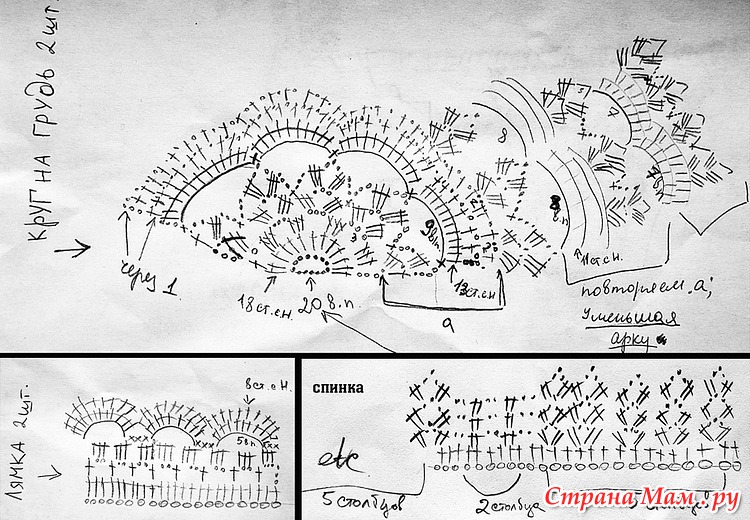 КРУГ НА ГРУДЬ 2 ШТ.
через 1
18 ст.с.н.
20 в.п.
а
9 в.п.
13 ст.с.н.
8
7
11 ст.с.н.
повторяем "а",
уменьшая
арку
ЛЯМКА 2 ШТ.
8 ст.с.н.
5 вп
xxx
спинка
etc
5 столбцов
2 столбца
5 столбцов
Страна Мам.ру